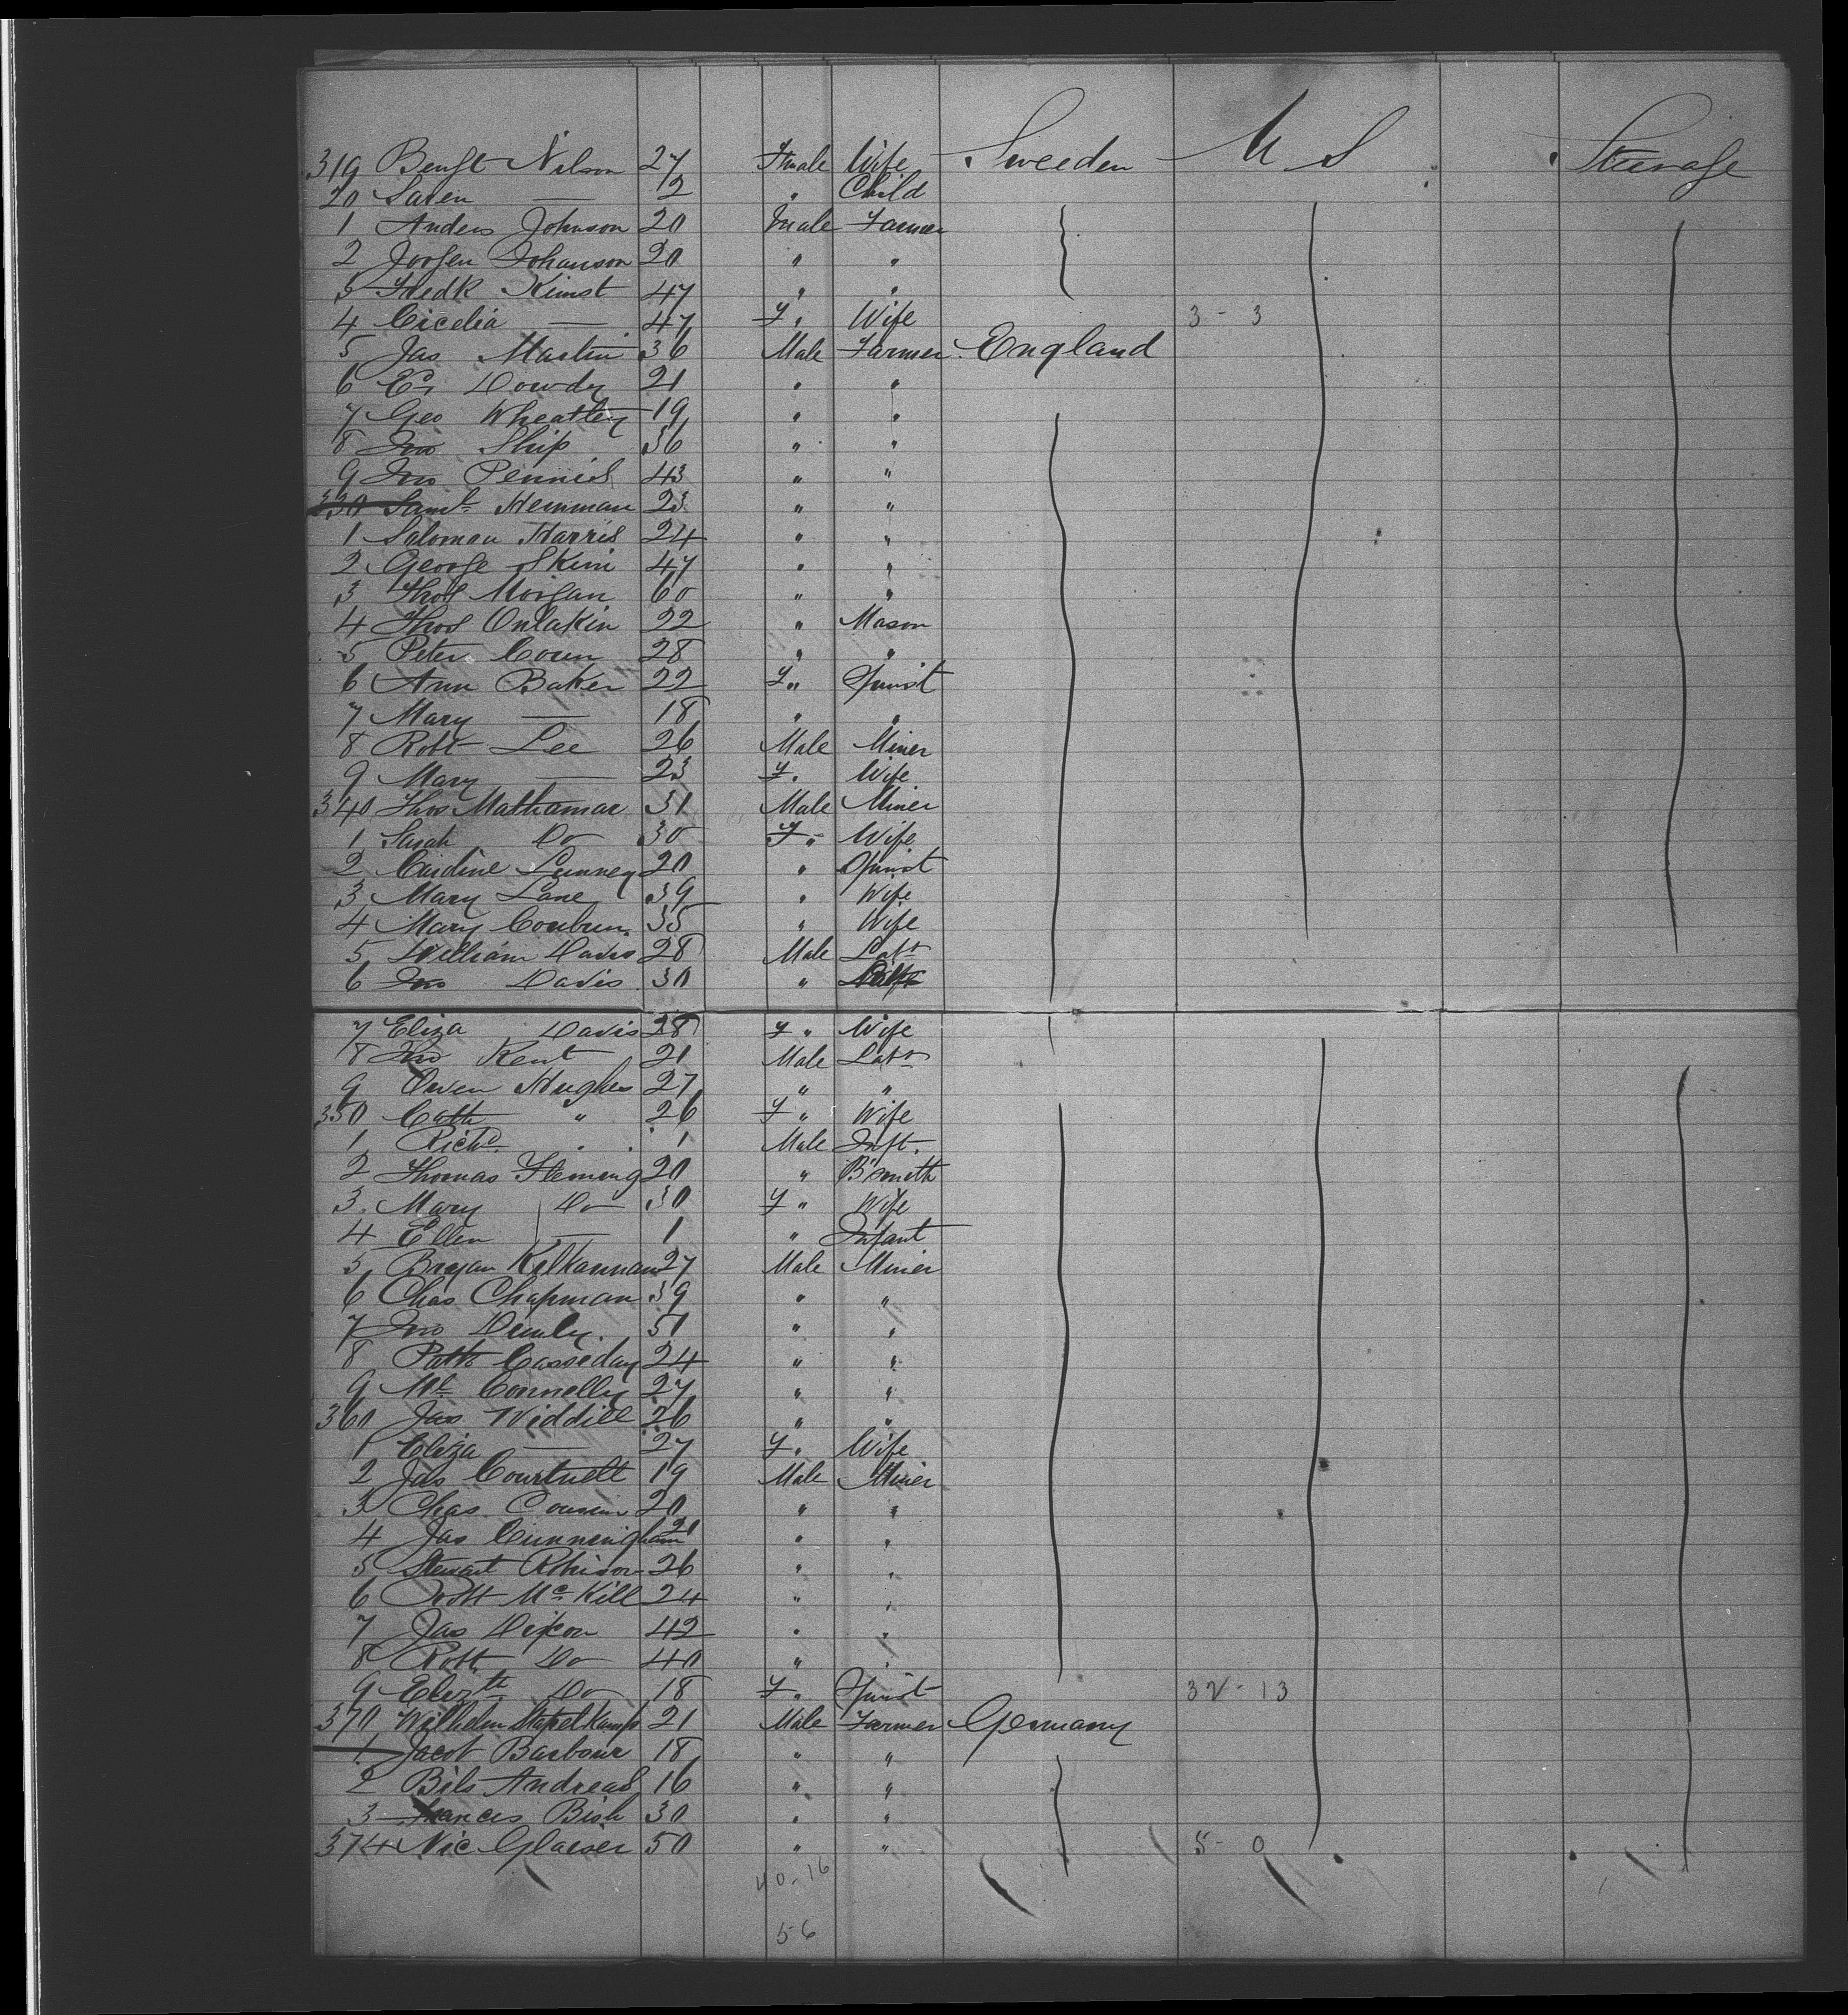 319 Bengt Nilson 27 Female Wife Sweeden U S Steerage
20 Saren — 12 " Child
1 Anders Johnson 20 Male Farmer
2 Jorgen Johanson 20 " "
3 Fredk Kimst 47 " "
4 Cicelia — 47 F " Wife 3 - 3
5 Jas Martin 36 Male Farmer England
6 Ed Dowdy 21 " "
7 Geo Wheatley 19 " "
8 Jno Ship 36 " "
9 Jno Pennick 43 " "
330 Saml Henman 23 " "
1 Saloman Harris 24 " "
2 George Skim 47 " "
3 Thos Morgan 60 " "
4 Thos Onlakin 22 " Mason
5 Peter Coum 28 " "
6 Ann Baker 22 F " Spinst
7 Mary — 18 " "
8 Robt Lee 26 Male Miner
9 Mary — 23 F " Wife
340 Thos Mathamar 31 Male Miner
1 Sarah Do 30 F " Wife
2 Cardine Lunney 20 " Spinst
3 Mary Lane 39 " Wife
4 Mary Coubun 35 " Wife
5 William Davis 28 Male Labr
6 Jno Davis 30 "
7 Eliza Davis 28 F " Wife
8 Jno Kent 21 Male Labr
9 Owen Hughes 27 " "
350 Cath " 26 F " Wife
1 Richd " 1 Male Inft.
2 Thomas Fleming 20 " B'smith
3 Mary Do 30 F " Wife
4 Ellen — 1 " Infant
5 Bryan Kilkannan 27 Male Miner
6 Chas Chapman 39 " "
7 Jno Dunly 51 " "
8 Patk Casseday 24 " "
9 Ml Connelly 27 " "
360 Jas Widdill 26 " "
1 Eliza — 27 F " Wife
2 Jas Courtnell 19 Male Miner
3 Chas Cousin 20 " "
4 Jas Cunningham 21 " "
5 Stewart Robison 26 " "
6 Robt Mc Kill 24 " "
7 Jas Dixon 42 " "
8 Robt Do 40 " "
9 Elizth Do 18 F " Spinst 32 - 13
370 Wilhelm Stapelkamp 21 Male Farmer Germany
1 Jacob Barbour 18 " "
2 Bils Andreas 16 " "
3 Francis Bish 30 " "
374 Nic Glaeser 50 " " 5 - 0
40 - 16
56